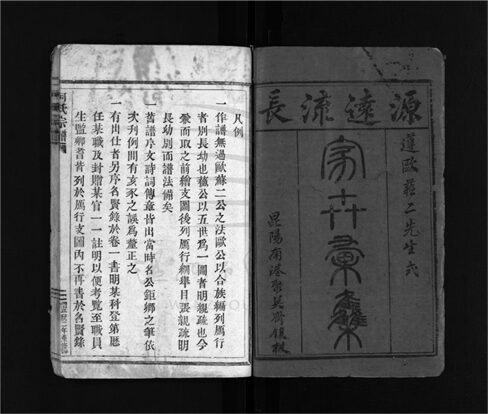 源遠流長
遵歐蘇二先生式
昆陽南港聚英齋鋟板
凡例
一作譜無過歐蘇二公之法歐公以合族編列雁行
者別長幼也蘇公以五世為一圖者明親疏也今
彙而取之前繪支圖後列雁行綱舉目張親疏明
長幼別而譜法備矣
一舊譜序文詩詞傳章皆出當時名公鉅鄉之筆依
次刋例間有亥豕之誤爲釐正之
一有出仕者另序名賢錄於卷一書明某科登第歷
任某職及封贈某官一一註明以便考覽至職員
生監鄉耆皆列於雁行支圖內不再書於名賢錄